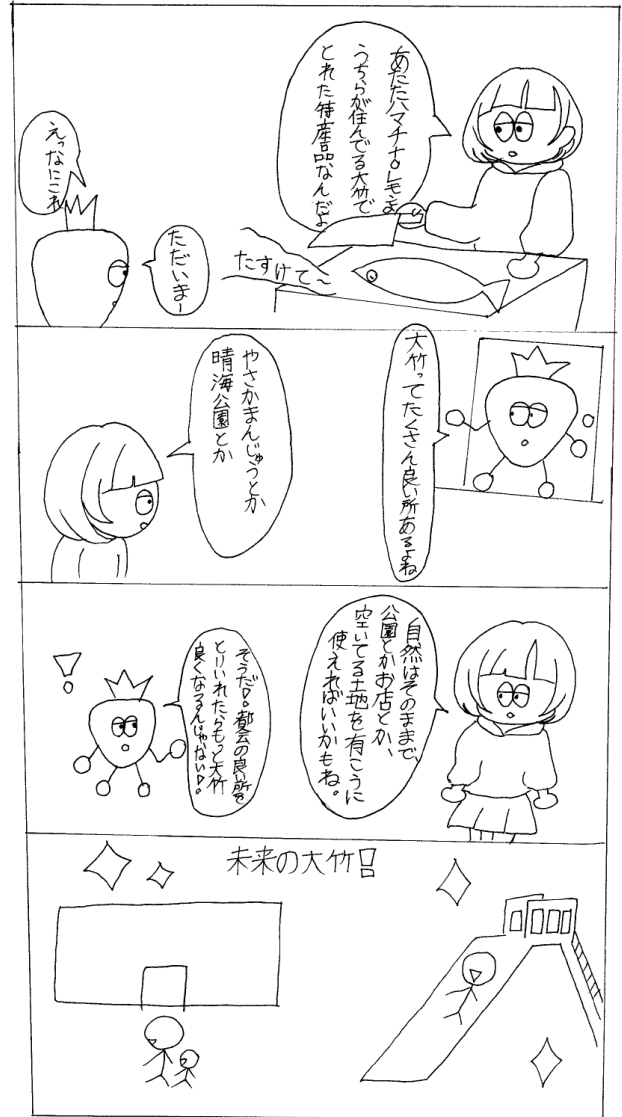 あたたハマチナ。レモよ
うちらが住んでる大竹で
とれた特産品なんだよ
たすけて〜
ただいまー
えっなにこれ
大竹ってたくさん良い所あるよね
やさかまんじゅうとか
晴海公園とか
自然はそのままで、
公園とかお店とか、
空いてる土地を有こうに
使えればいいかもね。
そうだ!。都会の良い所を
とりいれたらもっと大竹
良くなるんじゃない!。
!
未来の大竹!!